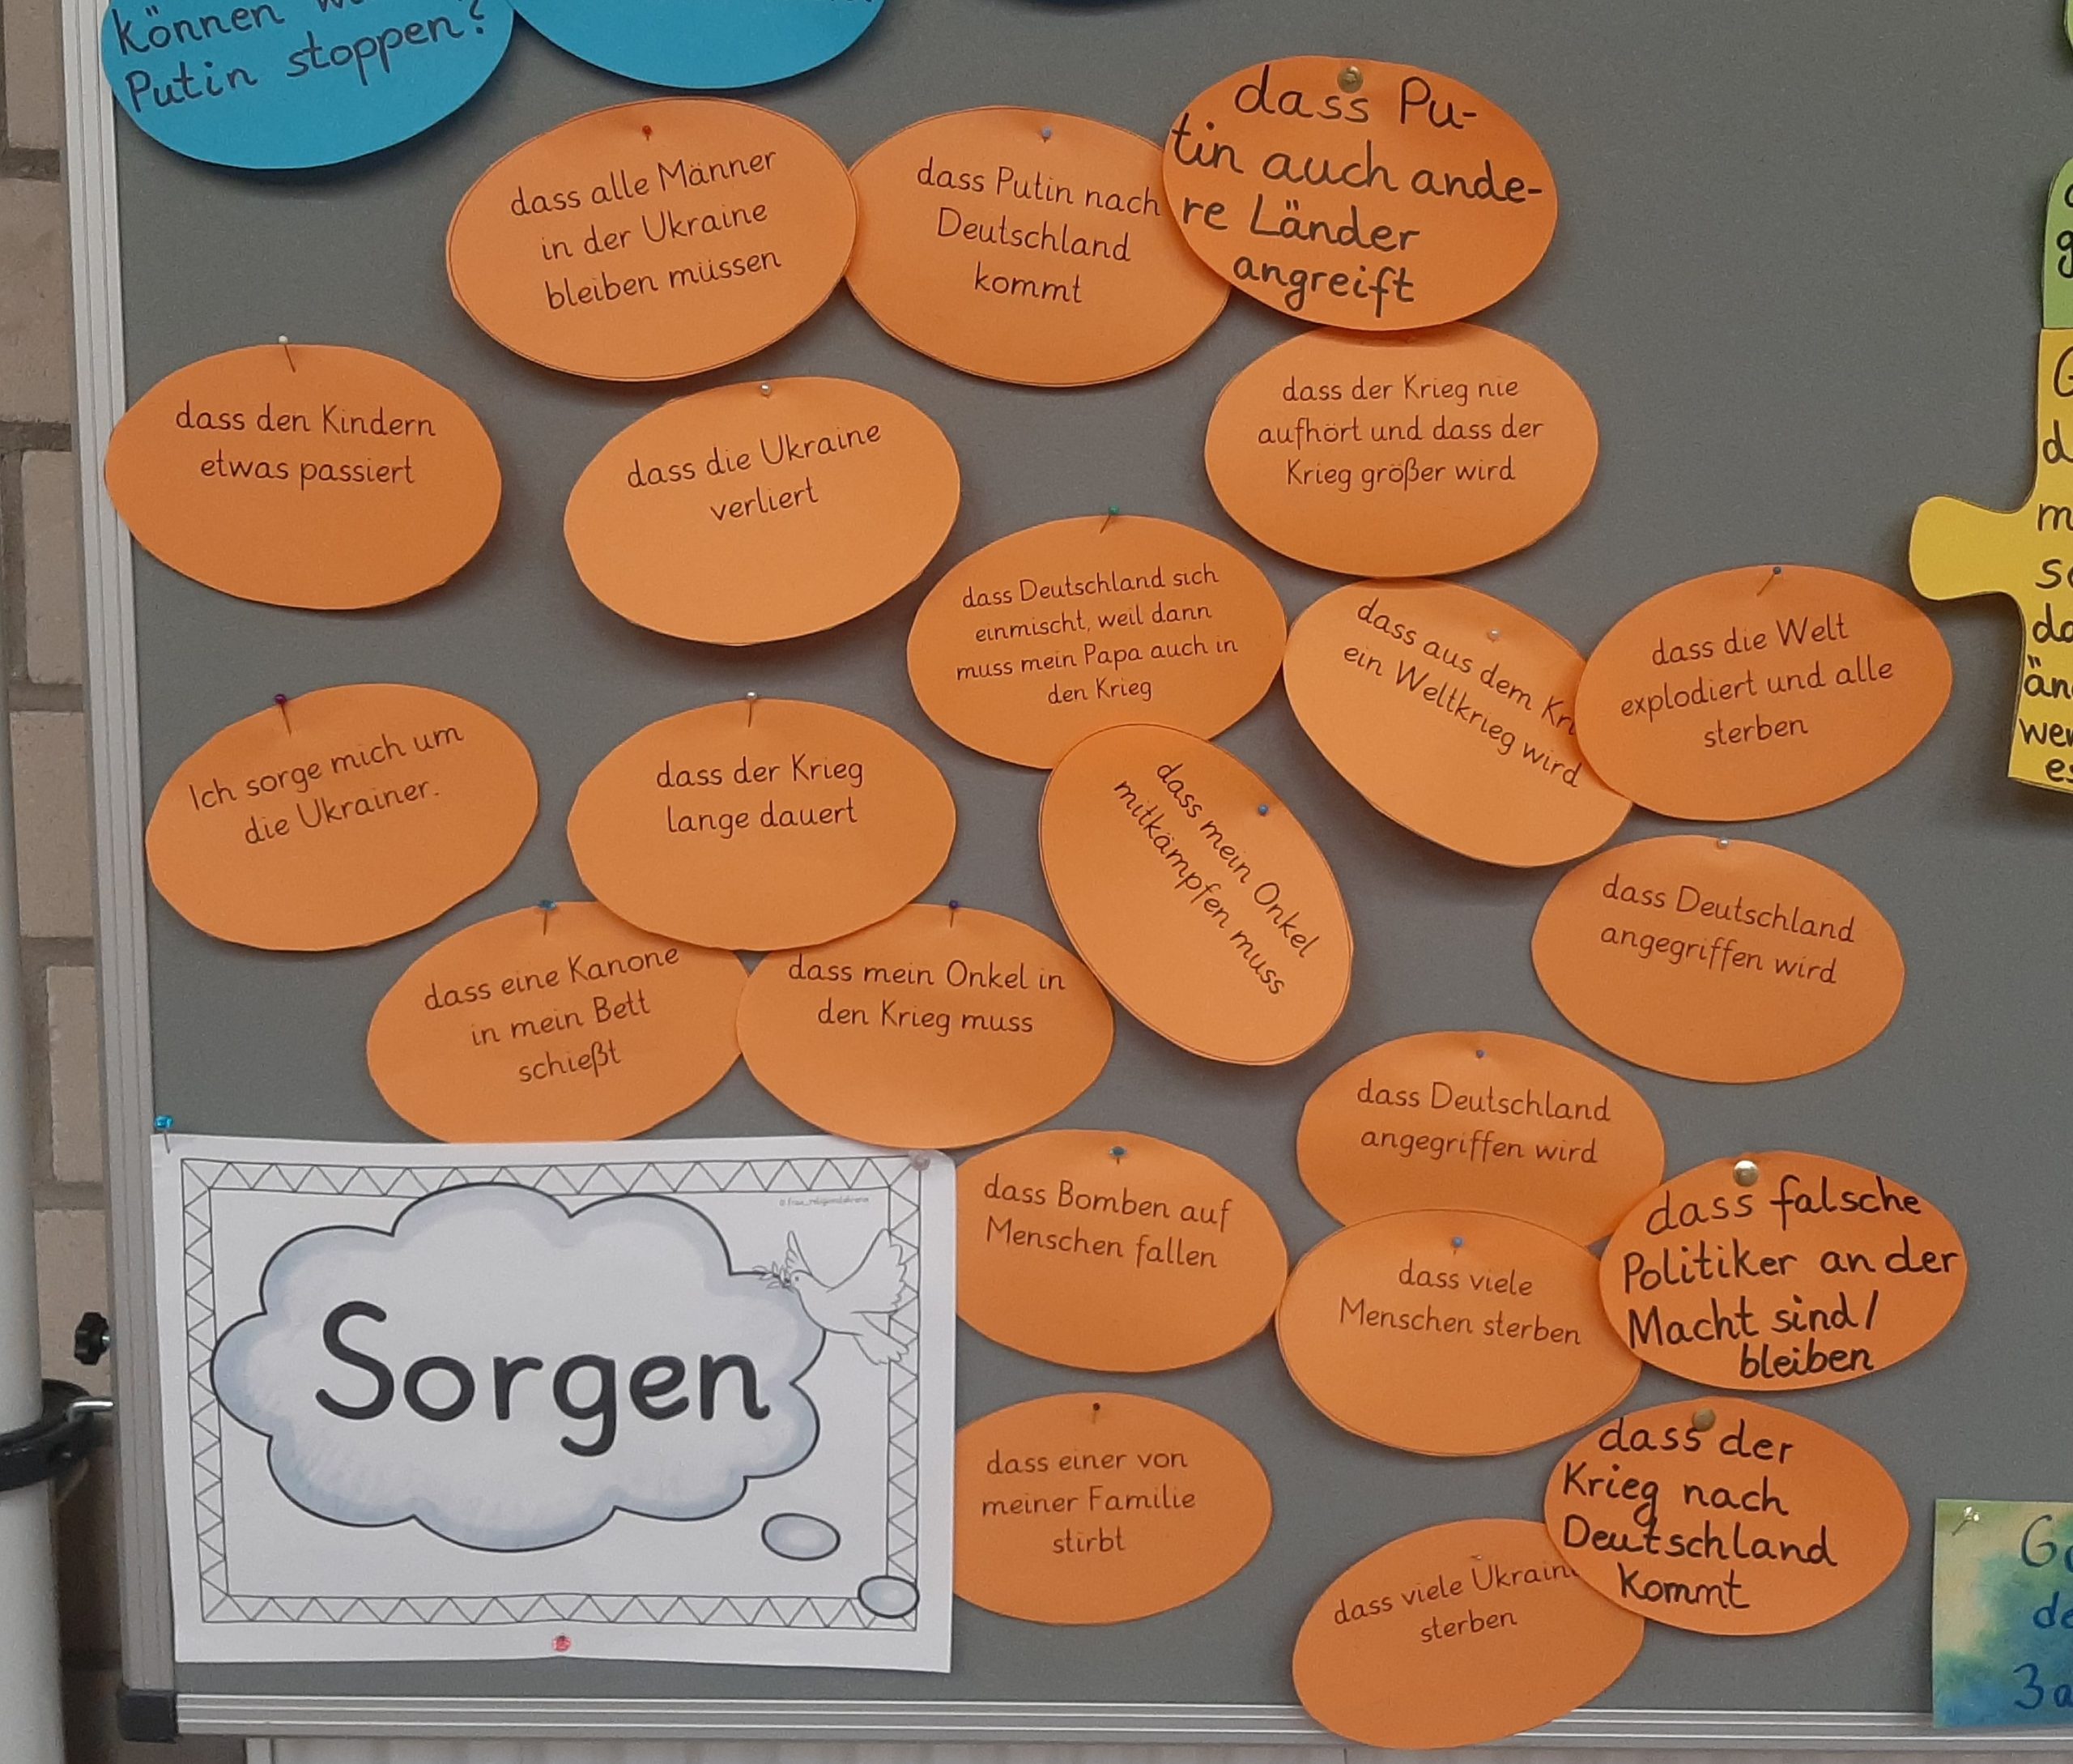 können
Putin stoppen?
dass alle Männer
in der Ukraine
bleiben müssen
dass Putin nach
Deutschland
kommt
dass Pu-
tin auch ande-
re Länder
angreift
dass den Kindern
etwas passiert
dass die Ukraine
verliert
dass der Krieg nie
aufhört und dass der
Krieg größer wird
dass Deutschland sich
einmischt, weil dann
muss mein Papa auch in
den Krieg
dass aus dem
ein Weltkrieg wird
dass die Welt
explodiert und alle
sterben
Ich sorge mich um
die Ukrainer.
dass der Krieg
lange dauert
dass mein Onkel
mitkämpfen muss
dass Deutschland
angegriffen wird
dass eine Kanone
in mein Bett
schießt
dass mein Onkel in
den Krieg muss
dass Deutschland
angegriffen wird
dass Bomben auf
Menschen fallen
dass viele
Menschen sterben
dass falsche
Politiker an der
Macht sind/
bleiben
Sorgen
dass einer von
meiner Familie
stirbt
dass der
Krieg nach
Deutschland
kommt
dass viele
sterben